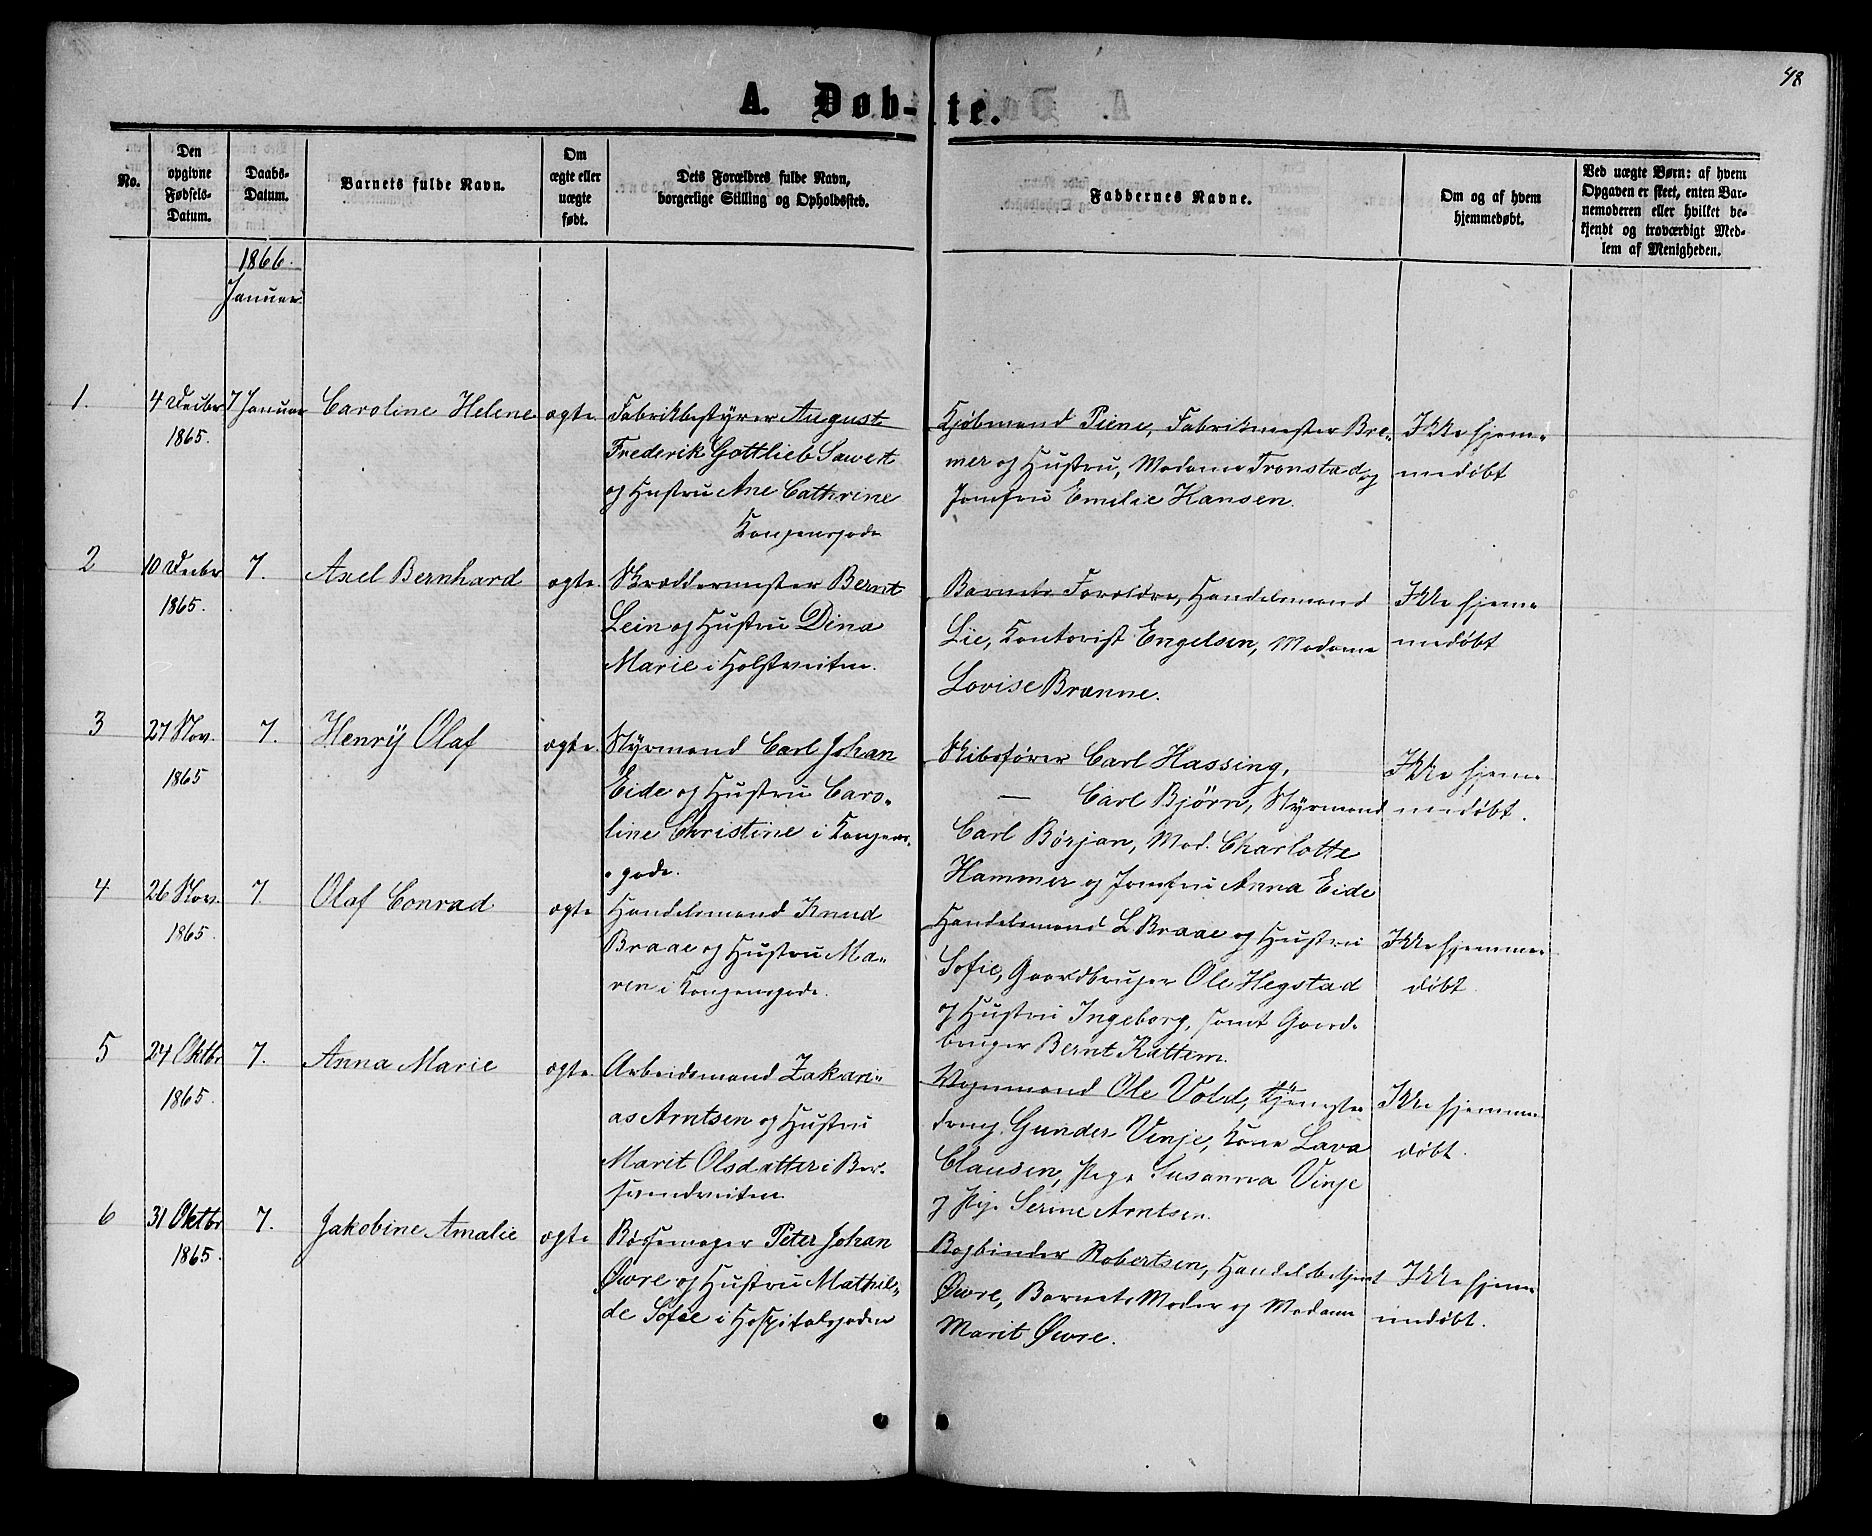 48
A. Døb-te.
No.
Den opgivne Fødsels-Datum.
Daabs-Datum.
Barnets fulde Navn.
Om ægte eller uægte født.
Dets Forældres fulde Navn, borgerlige Stilling og Opholdssted.
Faddernes Navne.
Om og af hvem hjemmedøbt.
Ved uægte Børn: af hvem Opgaven er skeet, enten Barnemoderen eller hvilket bekjendt og troværdigt Medlem af Menigheden.
1866.
Januar.
1.
4 Decbr
1865.
7 Januar
Caroline Helene
ægte
Fabrikbestyrer August
Frederik Gottlieb Sawert
og Hustru Ane Cathrine
Kongensgade
Kjøbmand Piene, Fabrikmester Bre-
mer og Hustru, Madame Tronstad og
Jomfru Emilie Hansen.
Ikke hjem-
medøbt
2
10 Decbr
1865.
7.
Axel Bernhard
ægte.
Skræddermester Bernt
Lein og Hustru Dina
Marie i Holstveiten.
Barnets Forældre, Handelsmand
Lie, Kontorist Engelsen, Madame
Lovise Brænne.
Ikke hjem-
medøbt
3
27 Nov.
1865
7.
Henry Olaf
ægte.
Styrmand Carl Johan
Eide og Hustru Caro-
line Christine i Kongens-
gade.
Skibsfører Carl Hassing,
— Carl Bjørn, Styrmand
Carl Børjan, Mad. Charlotte
Hammer og Jomfru Anna Eide
Ikke hjem-
medøbt.
4
26 Nov.
1865.
7.
Olaf Conrad
ægte
Handelsmand Knud
Braae og Hustru Ma-
ren i Kongensgade.
Handelsmand L Braae og Hustru
Sofie, Gaardbruger Ole Hegstad
og Hustru Ingeborg, samt Gaard-
bruger Bernt Rattem.
Ikke hjemme-
døbt.
5
24 Oktbr
1865.
7.
Anna Marie
ægte.
Arbeidsmand Zakari-
as Arntsen og Hustru
Marit Olsdatter i Ber-
svendveiten
Vognmand Ole Vold, Tjeneste
dreng Gunder Vinje, Kone Lava
Clausen, Pige Susanna Vinje
og Pige Serine Arntsen.
Ikke hjemme-
døbt.
6
31 Oktbr
1865.
7.
Jakobine Amalie
ægte
Bøssemager Peter Johan
Øwre og Hustru Mathil-
de Sofie i Hospitalsgaden
Bogbinder Robertsen, Handelsbetjent
Øwre, Barnets Moder og Madame
Marit Øwre.
Ikke hjem-
medøbt.